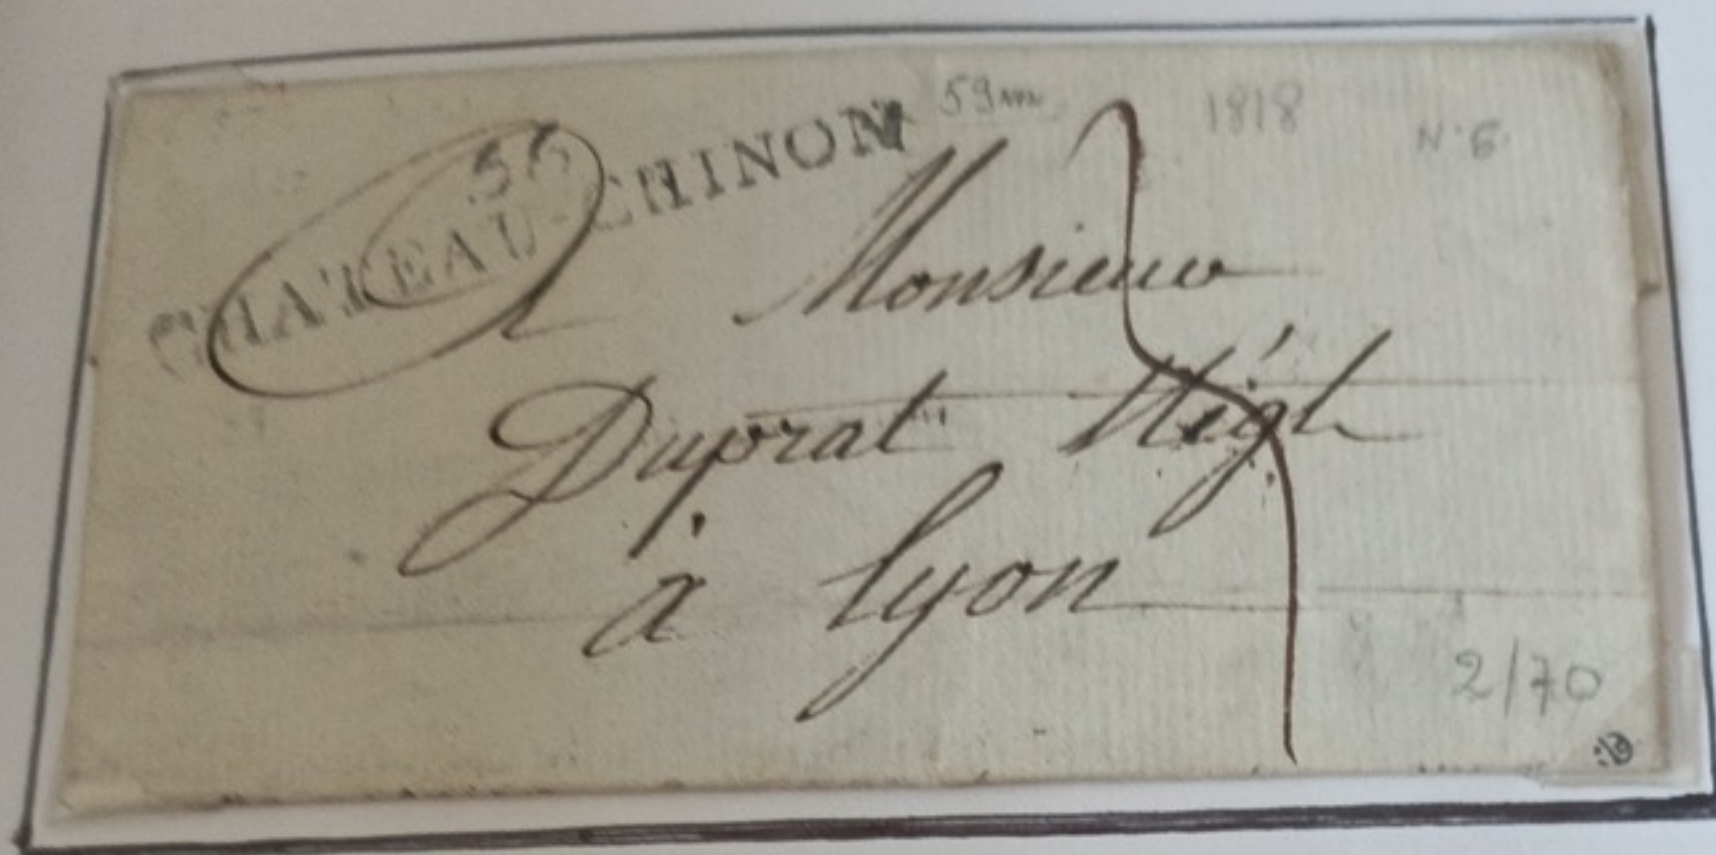 56
CHATEAU-CHINON
59mm
1818
N·6
A Monsieur
Duprat Nég.t
à Lyon
2/70